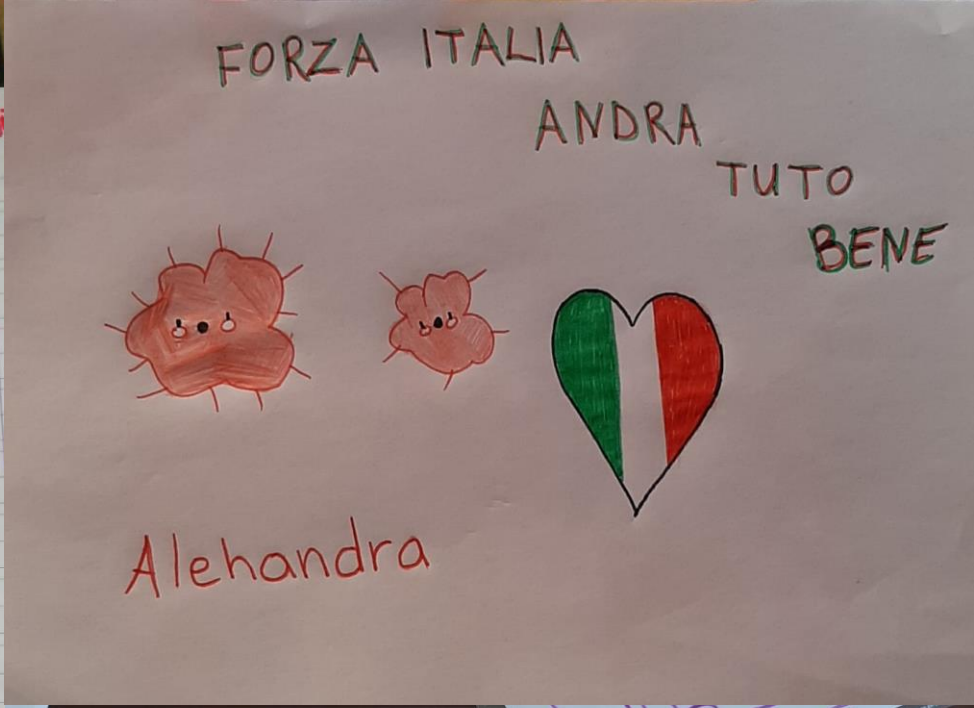 FORZA ITALIA
ANDRA
TUTO
BENE
Alehandra